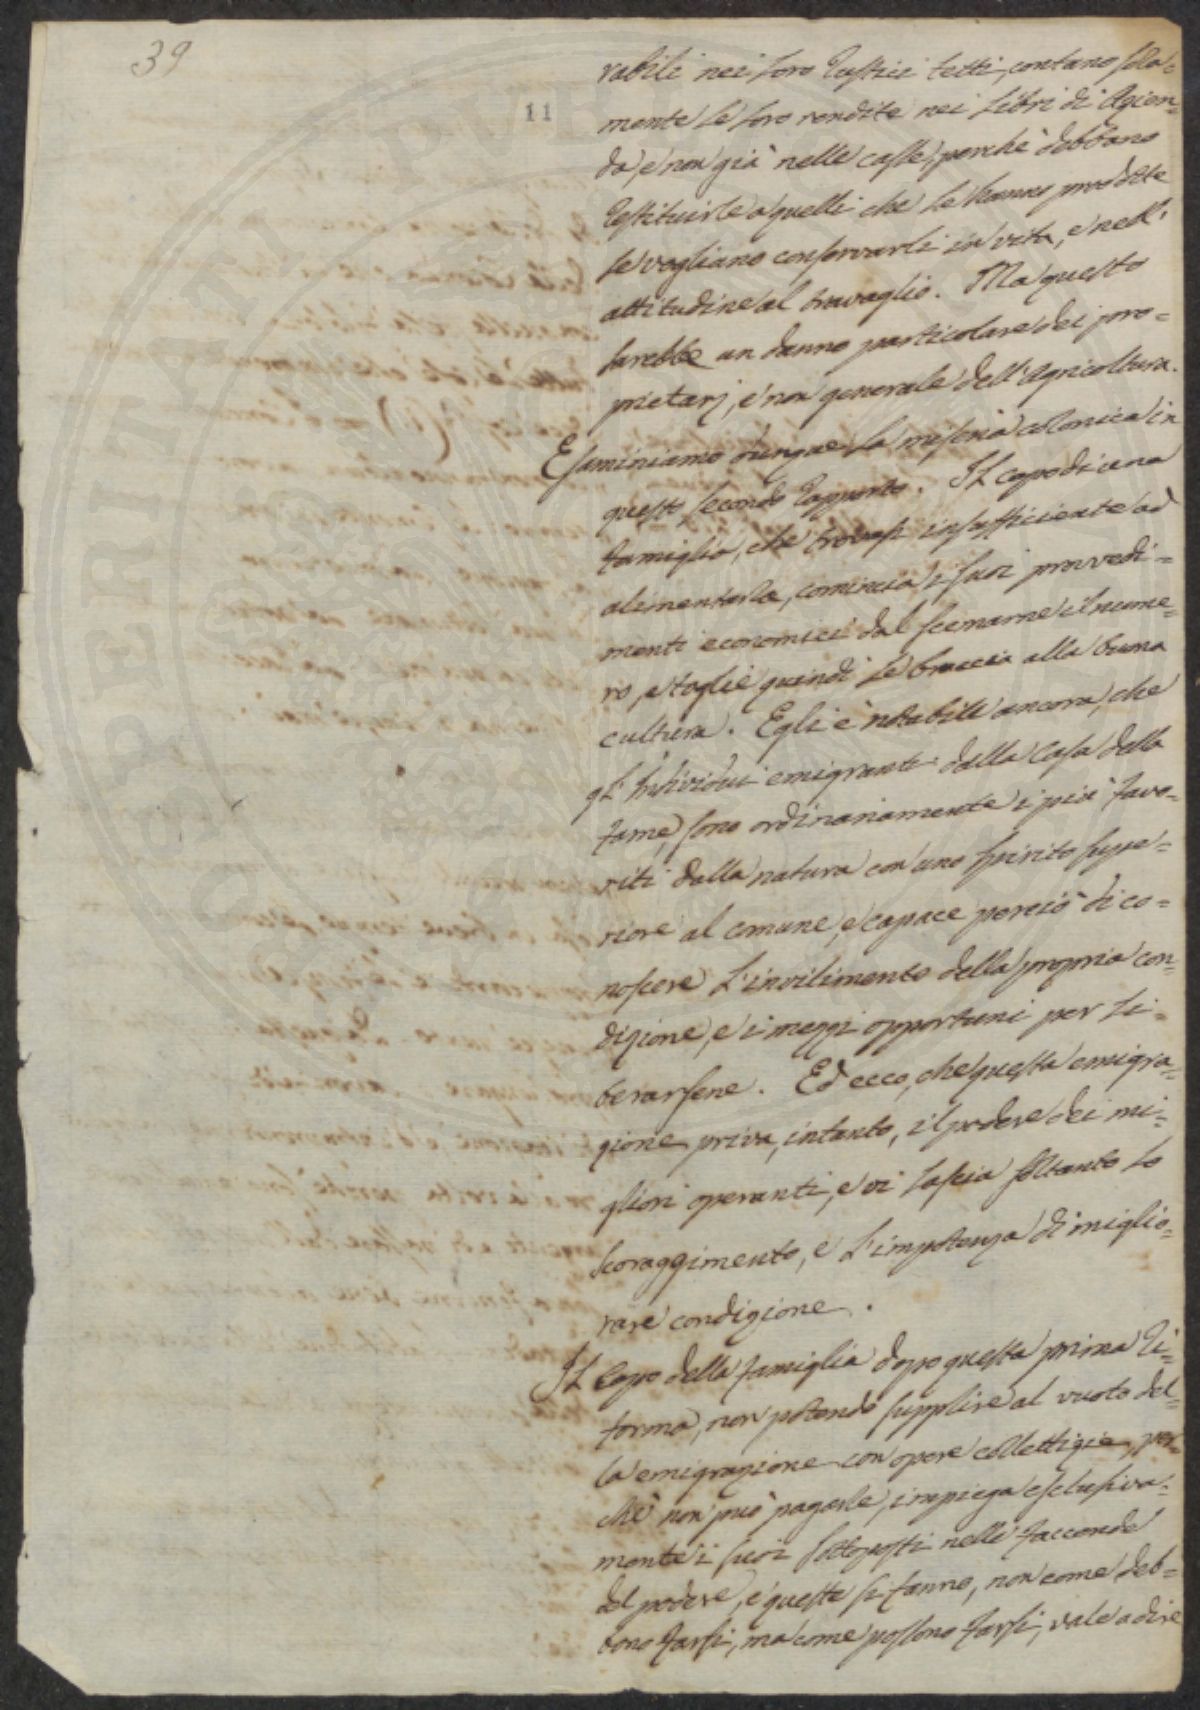 39
11
rabili nei loro rustici tetti, contano sola=
mente le loro rendite nei Libri di Azien=
da, e non già nelle casse, perchè debbano
restituirle a quelli che le hanno prodotte
se vogliano conservarli in vita, e nell'
attitudine al travaglio. Ma questo
sarebbe un danno particolare dei pro=
prietarj, e non generale dell'Agricoltura.
Esaminiamo dunque la miseria colonica in
questo secondo rapporto. Il capo di una
famiglia, che trovasi insufficiente ad
alimentarla, comincia i suoi provvedi=
menti economici dal scemarne il nume=
ro, e toglie quindi le braccia alla buona
cultura. Egli è notabile ancora, che
gl'Individui emigranti dalla Casa della
fame, sono ordinariamente i più favo=
riti dalla natura con uno spirito supe=
riore al comune, e capace perciò di co=
noscere l'invilimento della propria con=
dizione, e i mezzi opportuni per li=
berarsene. Ed ecco, che questa emigra=
zione priva, intanto, il podere dei mi=
gliori operanti, e vi lascia soltanto lo
scoraggimento, e l'impotenza di miglio=
rare condizione.
Il Capo della famiglia dopo questa prima ri=
forma, non potendo supplire al vuoto del=
la emigrazione con opere collettizie, per=
chè non può pagarle, impiega esclusiva=
mente i suoi sottoposti nelle faccende
del podere, e queste si fanno, non come deb=
bono farsi, ma come possono farsi, vale a dire